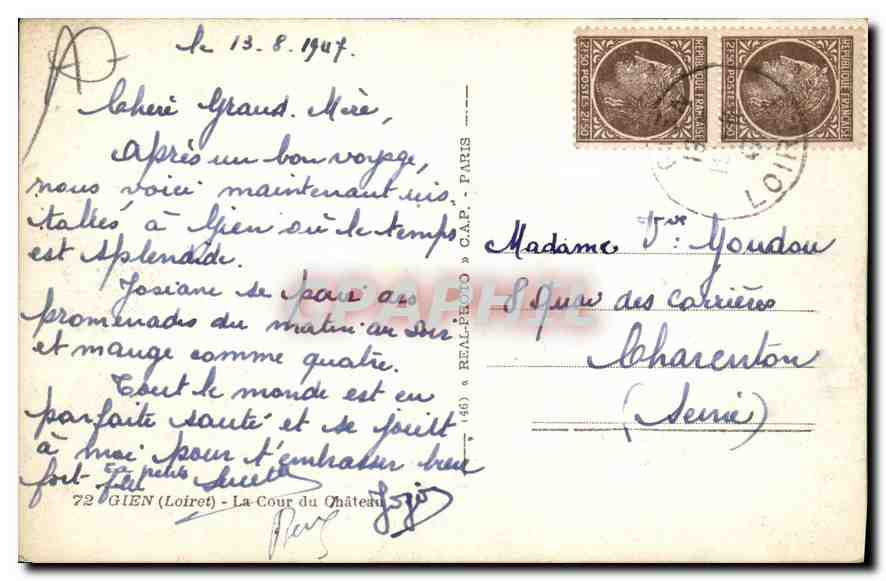 le 13.8.1947.
Chère Grand-Mère,
Après un bon voyage,
nous voici maintenant ins-
tallés à Gien où le temps
est splendide.
Josiane se paie des
promenades du matin au soir
et mange comme quatre.
Tout le monde est en
parfaite santé et se joint
à moi pour t'embrasser bien
fort
Ta petite
72 GIEN (Loiret) - La Cour du Château
(46) « REAL-PHOTO » C.A.P. - PARIS
RÉPUBLIQUE FRANÇAISE
2F50 POSTES 2F50
RÉPUBLIQUE FRANÇAISE
2F50 POSTES 2F50
LOIRET
Madame Vve Goudou
8 Quai des Carrières
Charenton
(Seine)
CPAPHIL